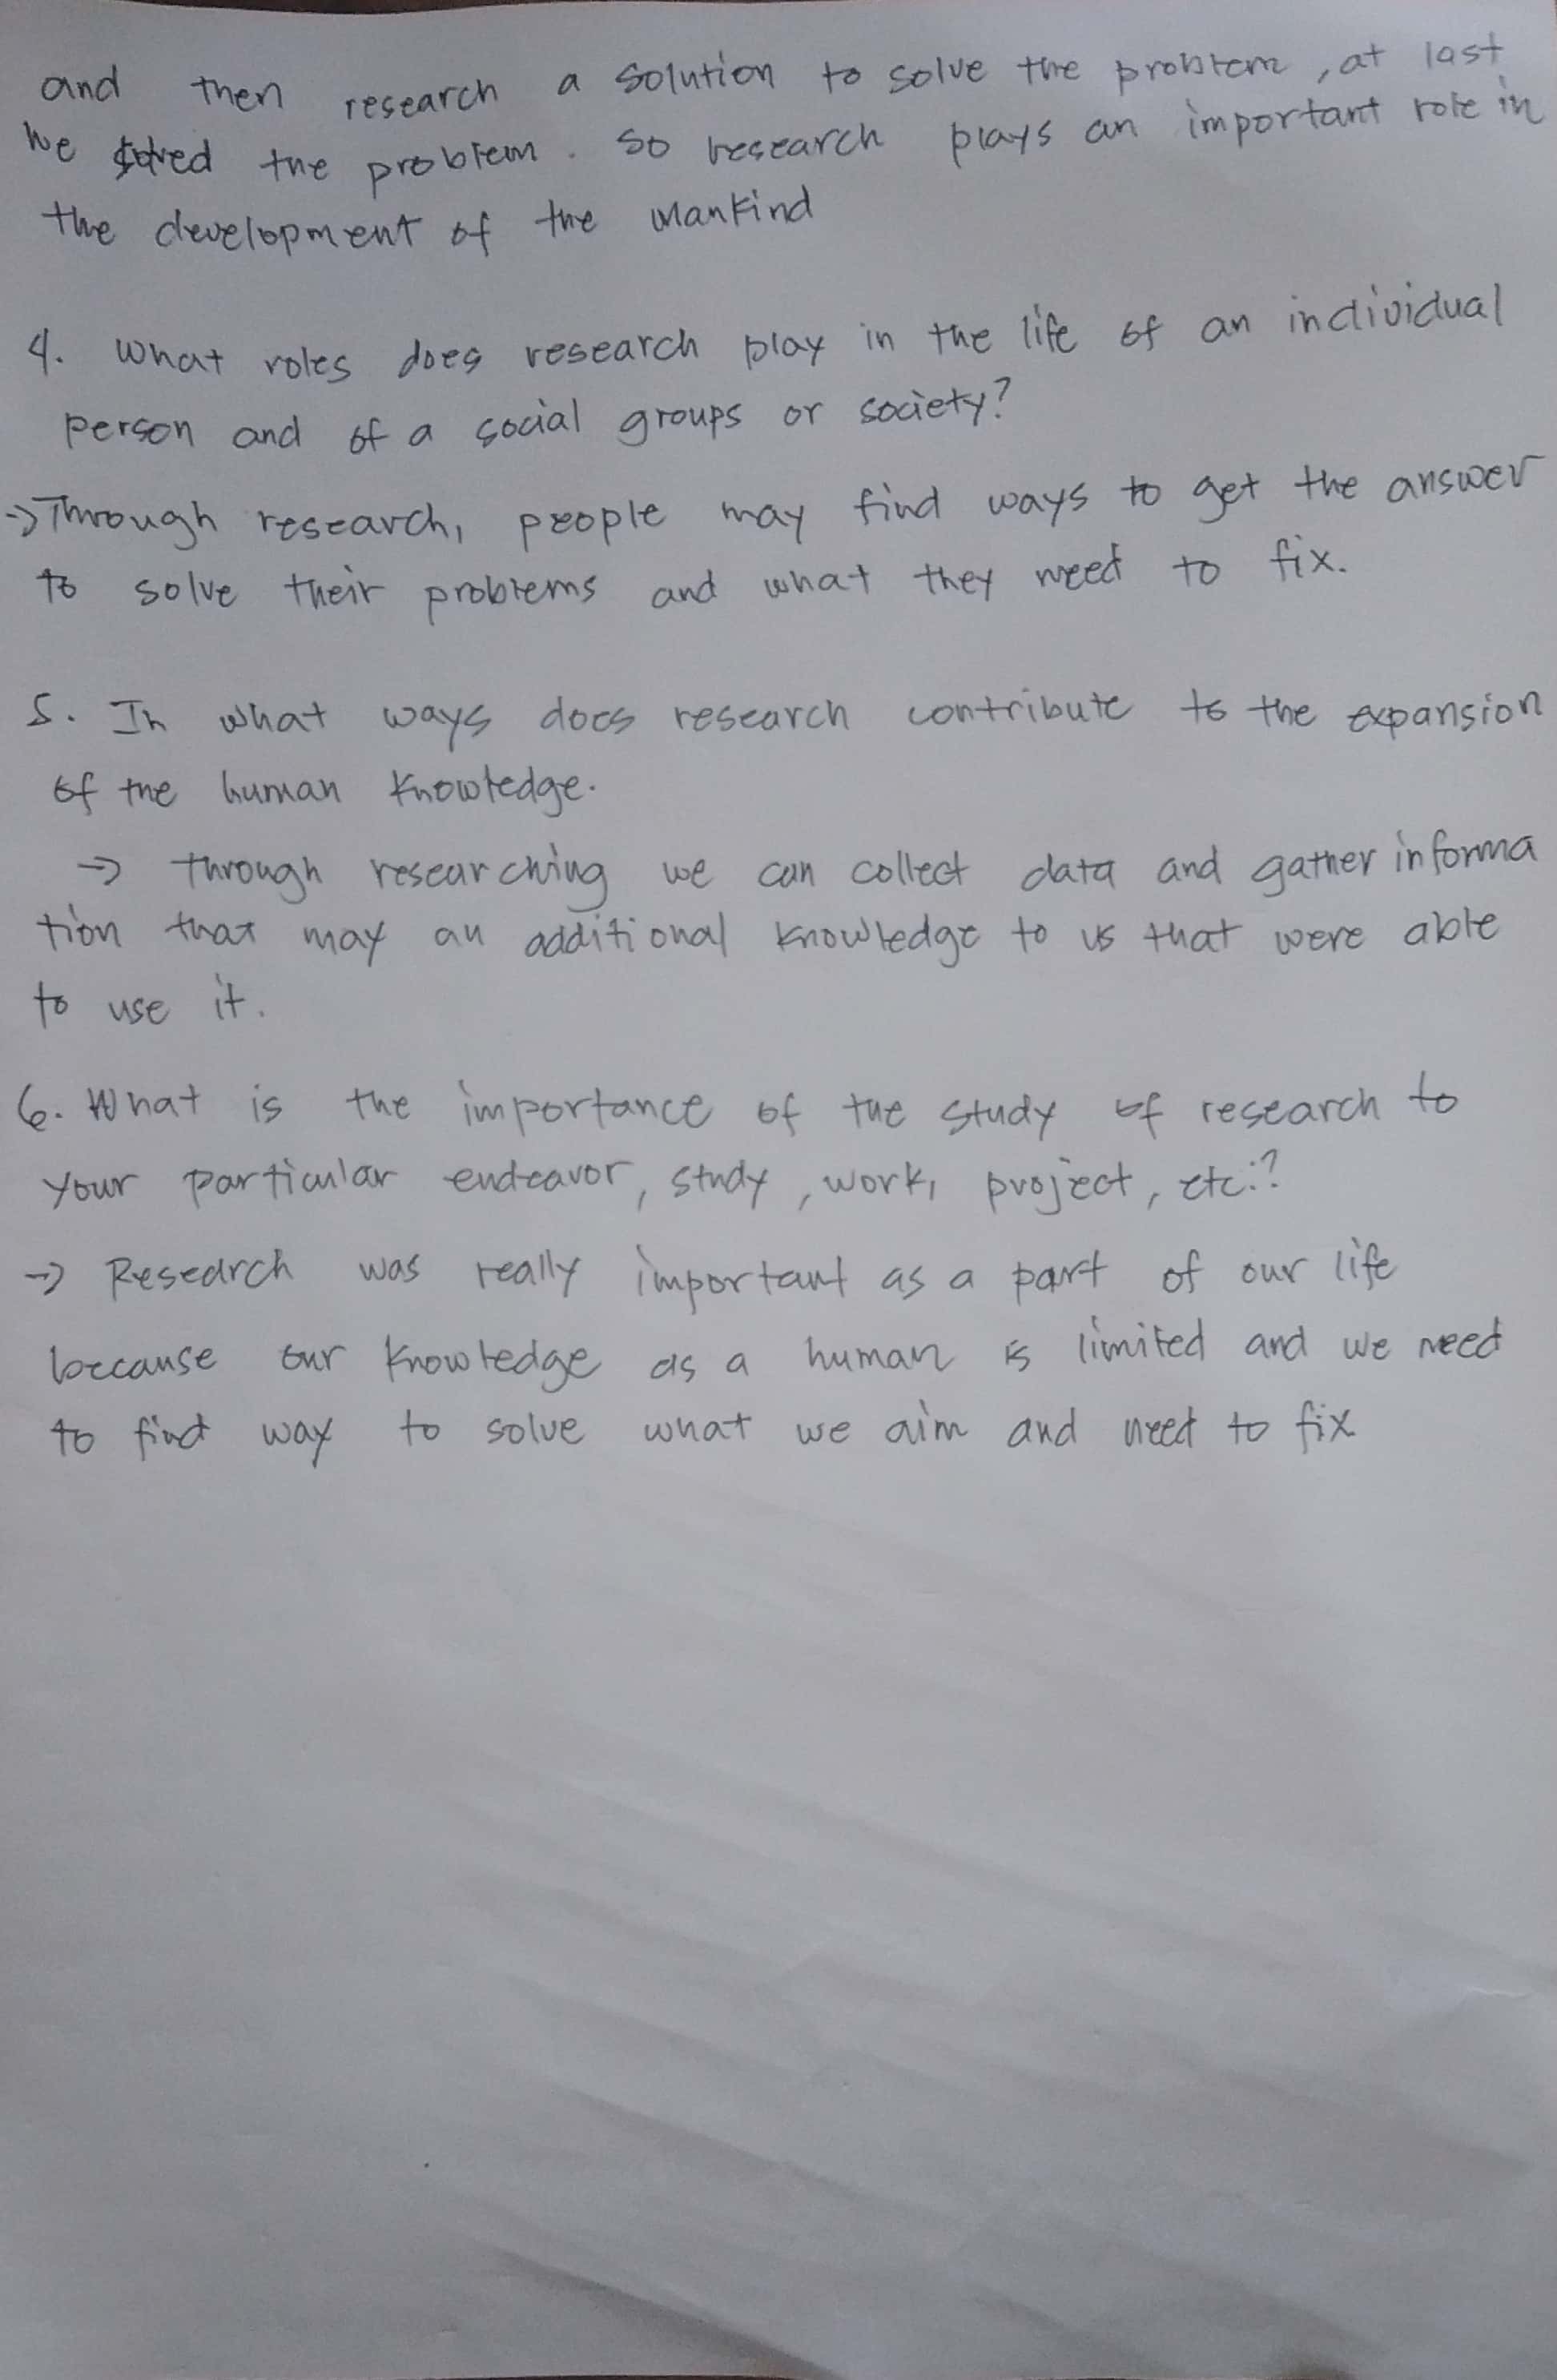 and then research a solution to solve the problem, at last
we solved the problem. So research plays an important role in
the development of the mankind
4. What roles does research play in the life of an individual
person and of a social groups or society?
→ Through research, people may find ways to get the answer
to solve their problems and what they need to fix.
5. In what ways does research contribute to the expansion
of the human knowledge.
→ through researching we can collect data and gather informa
tion that may an additional knowledge to us that were able
to use it.
6. What is the importance of the study of research to
your particular endeavor, study, work, project, etc.?
→ Research was really important as a part of our life
because our knowledge as a human is limited and we need
to find way to solve what we aim and need to fix